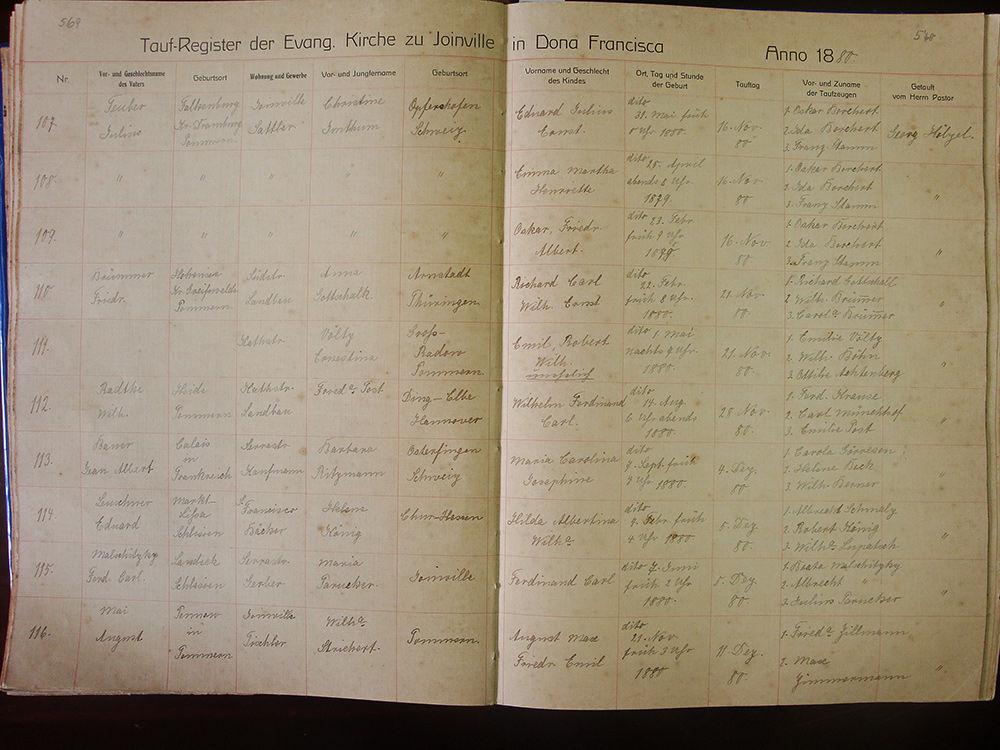 569
Tauf-Register der Evang. Kirche zu Joinville
in Dona Francisca
Anno 1880.
Nr.
Vor- und Geschlechtsname
des Vaters
Geburtsort
Wohnung und Gewerbe
Vor- und Jungfername
Geburtsort
Vorname und Geschlecht
des Kindes
Ort, Tag und Stunde
der Geburt
Tauftag
Vor- und Zuname
der Taufzeugen
Getauft
vom Herrn Pastor
107.
Julius
Falkenburg
Kr. Dramburg
Pommern
Joinville
Sattler
Christine
Imthum
Opfershofen
Schweiz
Eduard Julius
Ernst.
dito
31. Mai früh
Uhr 1880.
16. Nov
80
1. Oskar Borchert
2. Ida Borchert
3. Franz Stamm
Georg Hölzel.
108.
" " " " "
Emma Martha
Henriette
dito 25. April
abends 8 Uhr
1879.
16. Nov
80
1. Oskar Borchert
2. Ida Borchert
3. Franz Stamm
"
109.
" " " " "
Oskar, Friedr.
Albert.
dito 23. Febr
früh 9 Uhr
16. Nov
80
1. Oskar Borchert
2. Ida Borchert
3. Franz Stamm
"
110.
Brümmer
Friedr.
Kr. Greifswalde
Pommern
Südstr.
Landbau
Anna
Gottschalk.
Arnstadt
Thüringen
Richard Carl
Wilh. Ernst
dito
22. Febr.
früh 8 Uhr.
1880.
21. Nov
80
1. Richard Gottschalk
2. Wilh. Brümer
3. Carola Brümer
"
111.
Völtz
Ernestina
Gross-
Radow
Pommern.
Emil, Robert
Wilh.
unehelich
dito 1. Mai
nachts 9 Uhr.
1880.
21. Nov
80.
1. Emilie Völtz
2. Wilh. Böhn
3. Ottilie Achtenberg
"
112.
Radtke
Wilh.
Heide
Pommern
Landbau
Frieda Post
Hannover
Wilhelm Ferdinand
Carl.
dito
14. Aug.
6 Uhr abends
1880.
28. Nov
80.
1. Ferd. Krause
2. Carl Münchhof
3. Emilie Post
"
113.
Bauer
Jean Albert
Calais
in
Frankreich
Serrastr.
Kaufmann
Barbara
Ritzmann
Osterfingen
Schweiz
Maria Carolina
Josephine
dito
9. Sept. früh
Uhr 1880.
4. Dez
80
1. Carola Görresen
2. Helene Beck
3. Wilh. Berner
"
114.
Eduard
Markt-
Schlesien
Bäcker
Helene
König
Chur-Hessen
Hilda Albertina
Wilha.
dito
9. Febr. früh
4 Uhr 1880
5. Dez
80.
1. Albrecht Schmalz
2. Robert König
3. Wilha
"
115.
Malschitzky
Ferd. Carl.
Landeck
Schlesien
Serrastr.
Gerber
Maria
Parucker
Joinville
Ferdinand Carl
dito 7. Juni
früh 2 Uhr
1880.
5. Dez
80
1. Beata Malschitzky
2. Albrecht "
3. Julius Parucker
"
116.
Mai
August
in
Pommern
Joinville
Tischler
Wilha.
Strichert.
Pommern.
August Max
Friedr. Emil
dito
21. Nov
früh 3 Uhr
1880
11. Dez.
80.
1. Frieda Zillmann
2. Max
Zimmermann
"